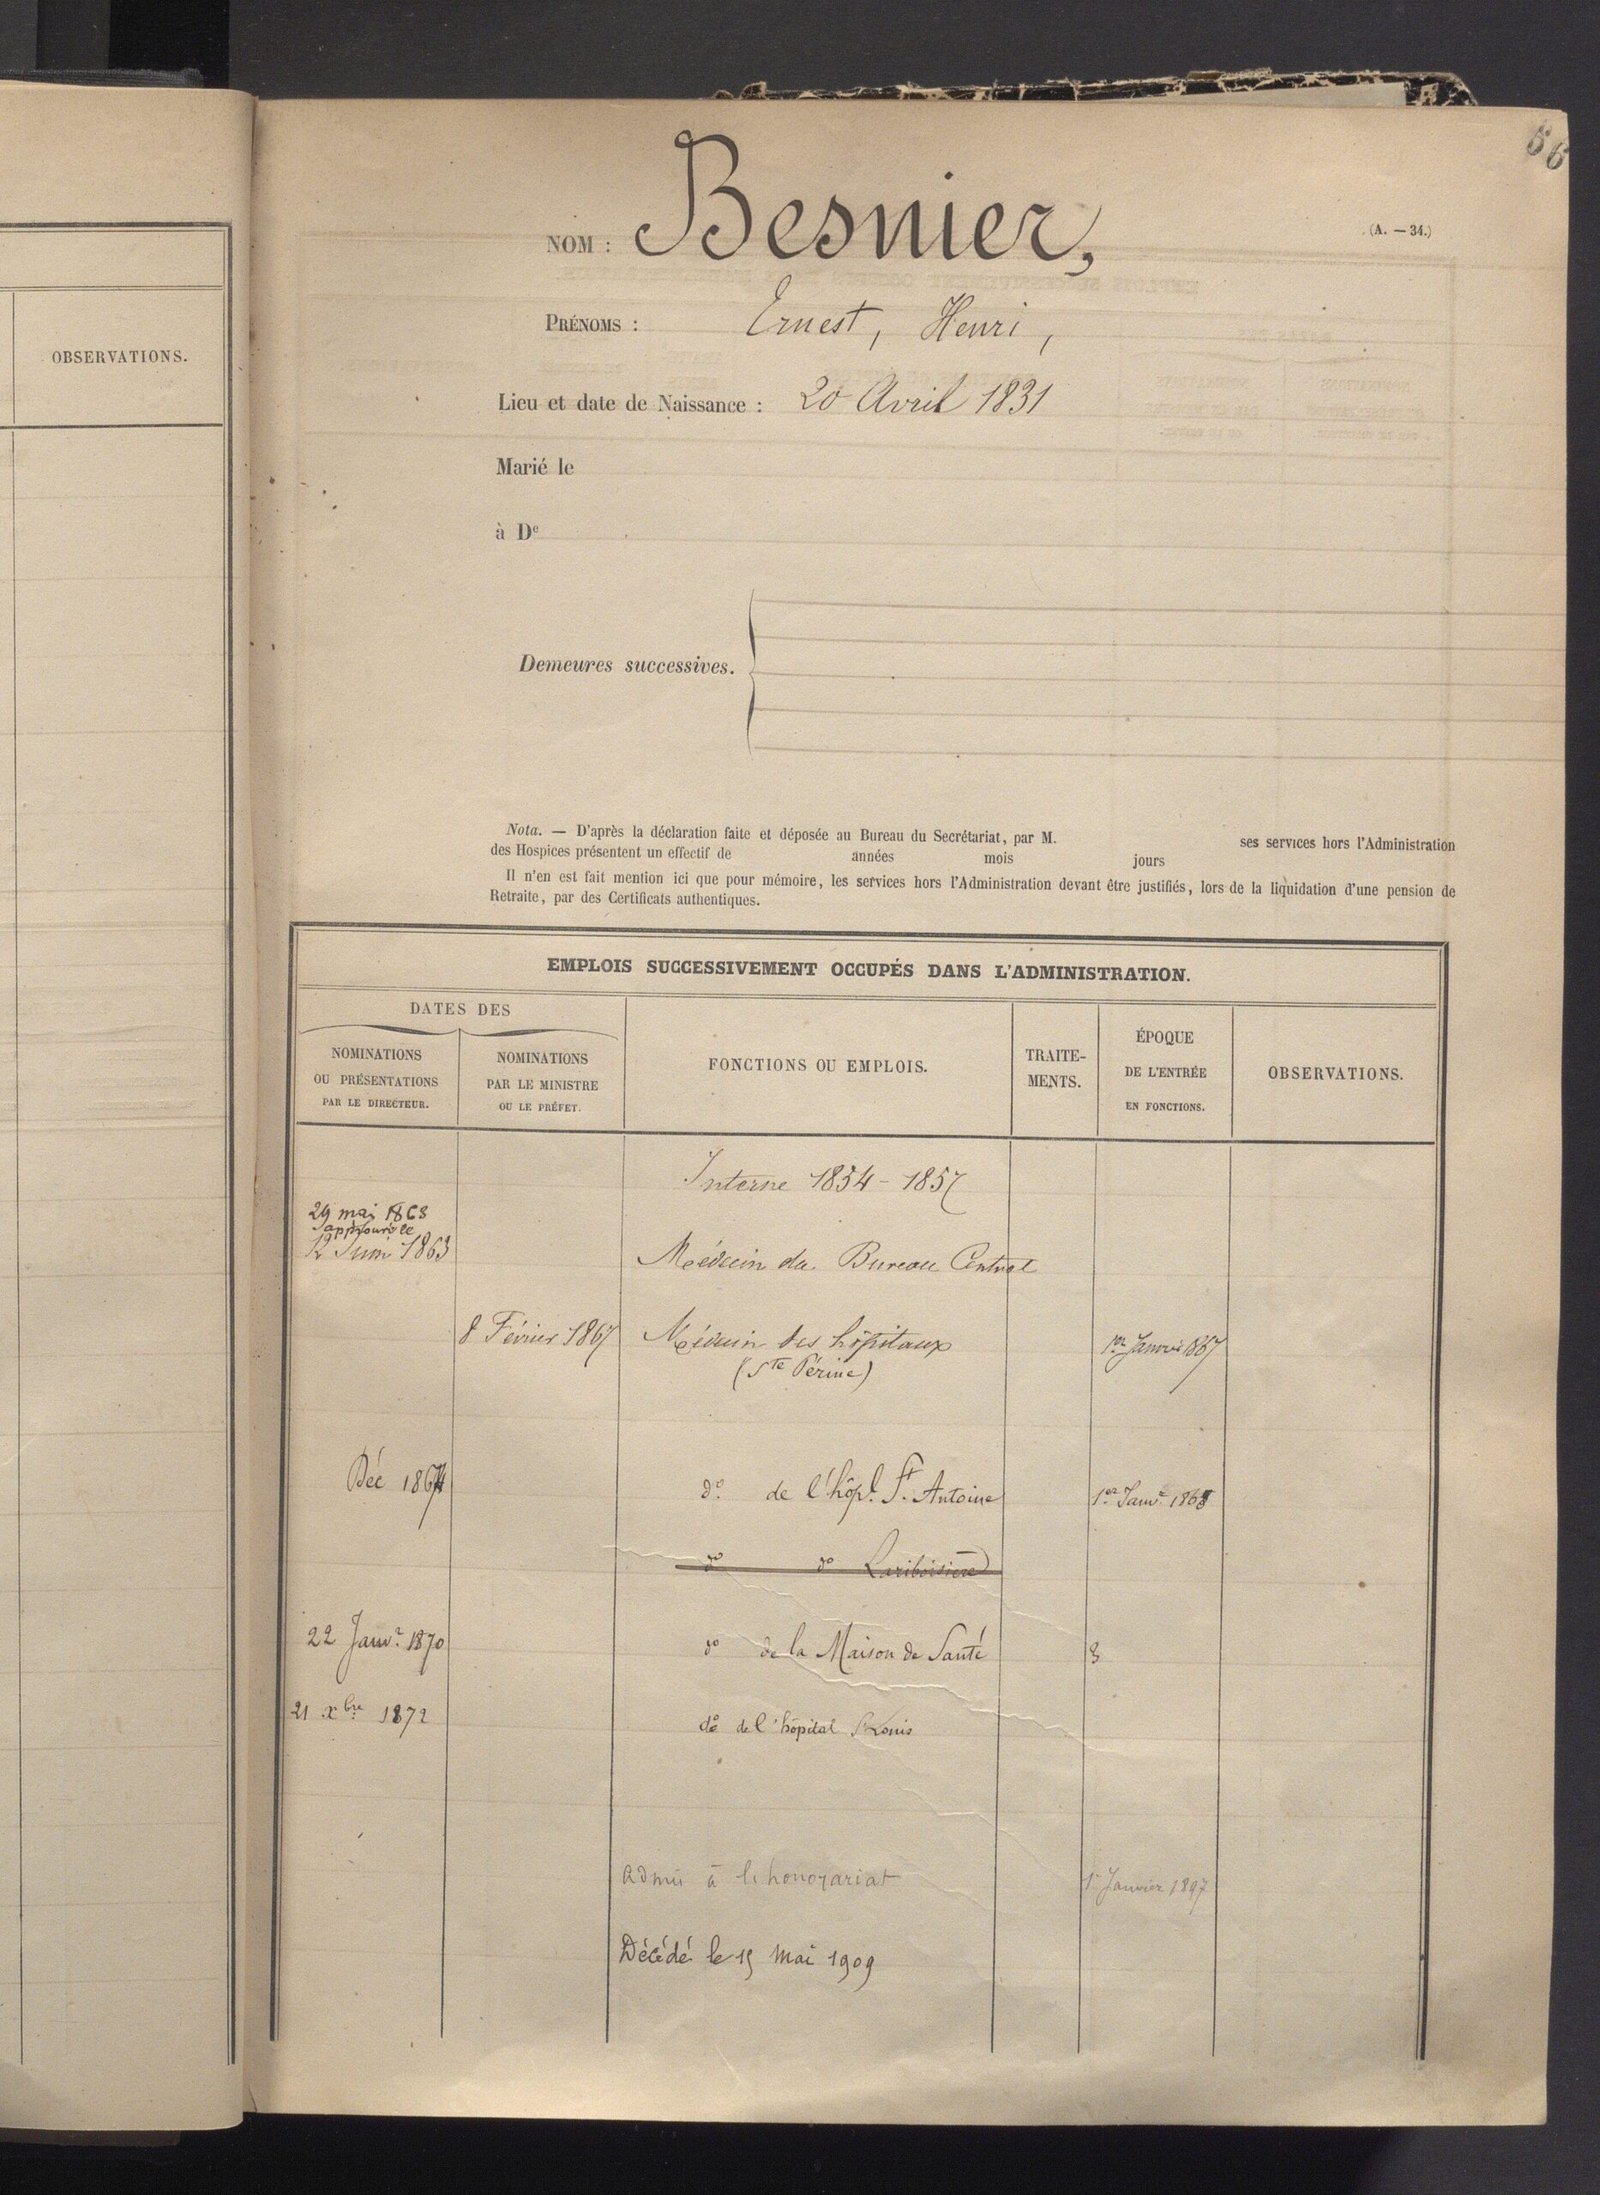 OBSERVATIONS.
66
(A. — 34.)
NOM : Besnier,
PRÉNOMS : Ernest, Henri,
Lieu et date de Naissance : 20 Avril 1831
Marié le
à De
Demeures successives.
Nota. — D'après la déclaration faite et déposée au Bureau du Secrétariat, par M. ses services hors l'Administration
des Hospices présentent un effectif de années mois jours
Il n'en est fait mention ici que pour mémoire, les services hors l'Administration devant être justifiés, lors de la liquidation d'une pension de
Retraite, par des Certificats authentiques.
EMPLOIS SUCCESSIVEMENT OCCUPÉS DANS L'ADMINISTRATION.
DATES DES
NOMINATIONS
OU PRÉSENTATIONS
PAR LE DIRECTEUR.
NOMINATIONS
PAR LE MINISTRE
OU LE PRÉFET.
FONCTIONS OU EMPLOIS.
TRAITE-
MENTS.
ÉPOQUE
DE L'ENTRÉE
EN FONCTIONS.
OBSERVATIONS.
Interne 1854 - 1857
29 mai 1863
approuvé le
12 Juin 1863
Médecin du Bureau Central
8 Février 1867 Médecin des hôpitaux 1er Janvier 1867
(Ste Périne)
Déc 1867 do de l'hôpl. St. Antoine 1er Janvr 1868
do do Lariboisière
22 Janvr 1870 do de la Maison de Santé
21 xbre 1872 do de l'hôpital St Louis
Admis à l'honorariat 1r Janvier 1897
Décédé le 15 Mai 1909